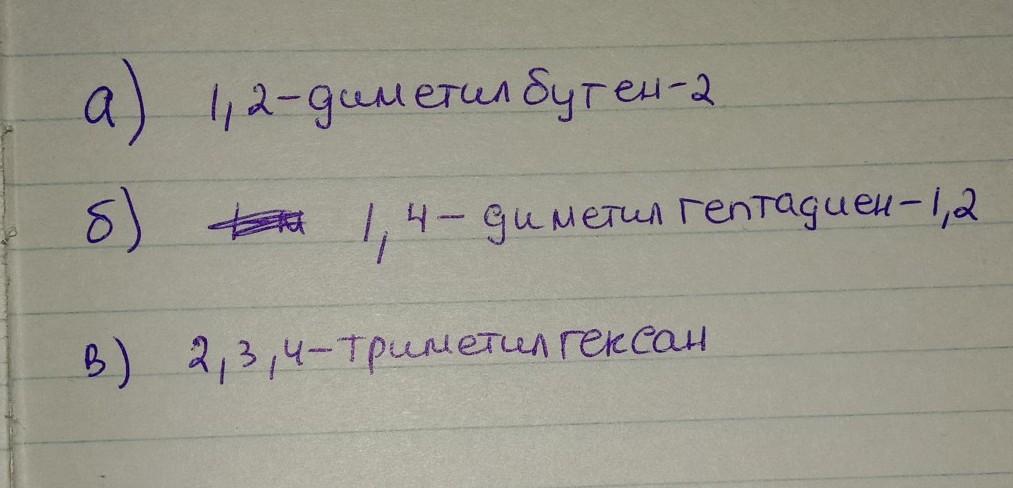 а) 1,2-диметилбутен-2
б) 1,4-диметилгептадиен-1,2
в) 2,3,4-триметилгексан